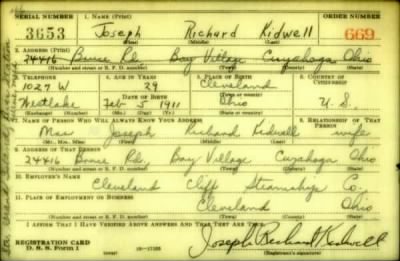 SERIAL NUMBER 1. NAME (Print) ORDER NUMBER
3653 Joseph Richard Kidwell 669
(First) (Middle) (Last)
2. ADDRESS (Print)
24416 Rd. Bay Village Cuyahoga Ohio
(Number and street or R. F. D. number) (Town) (County) (State)
3. TELEPHONE 4. AGE IN YEARS 5. PLACE OF BIRTH 6. COUNTRY OF CITIZENSHIP
1027 W 29 Cleveland
DATE OF BIRTH (Town or county)
Westlake Feb 5 1911 Ohio U. S.
(Exchange) (Number) (Mo.) (Day) (Yr.) (State or country)
7. NAME OF PERSON WHO WILL ALWAYS KNOW YOUR ADDRESS 8. RELATIONSHIP OF THAT PERSON
Mrs Joseph Richard Kidwell wife
(Mr., Mrs., Miss) (First) (Middle) (Last)
9. ADDRESS OF THAT PERSON
24416 Rd. Bay Village Cuyahoga Ohio
(Number and street or R. F. D. number) (Town) (County) (State)
10. EMPLOYER'S NAME
Cleveland Cliff Steamship Co.
11. PLACE OF EMPLOYMENT OR BUSINESS
Cleveland Ohio
(Number and street or R. F. D. number) (Town) (County) (State)
I AFFIRM THAT I HAVE VERIFIED ABOVE ANSWERS AND THAT THEY ARE TRUE.
REGISTRATION CARD
D. S. S. Form 1
Joseph Richard Kidwell
(Registrant's signature)